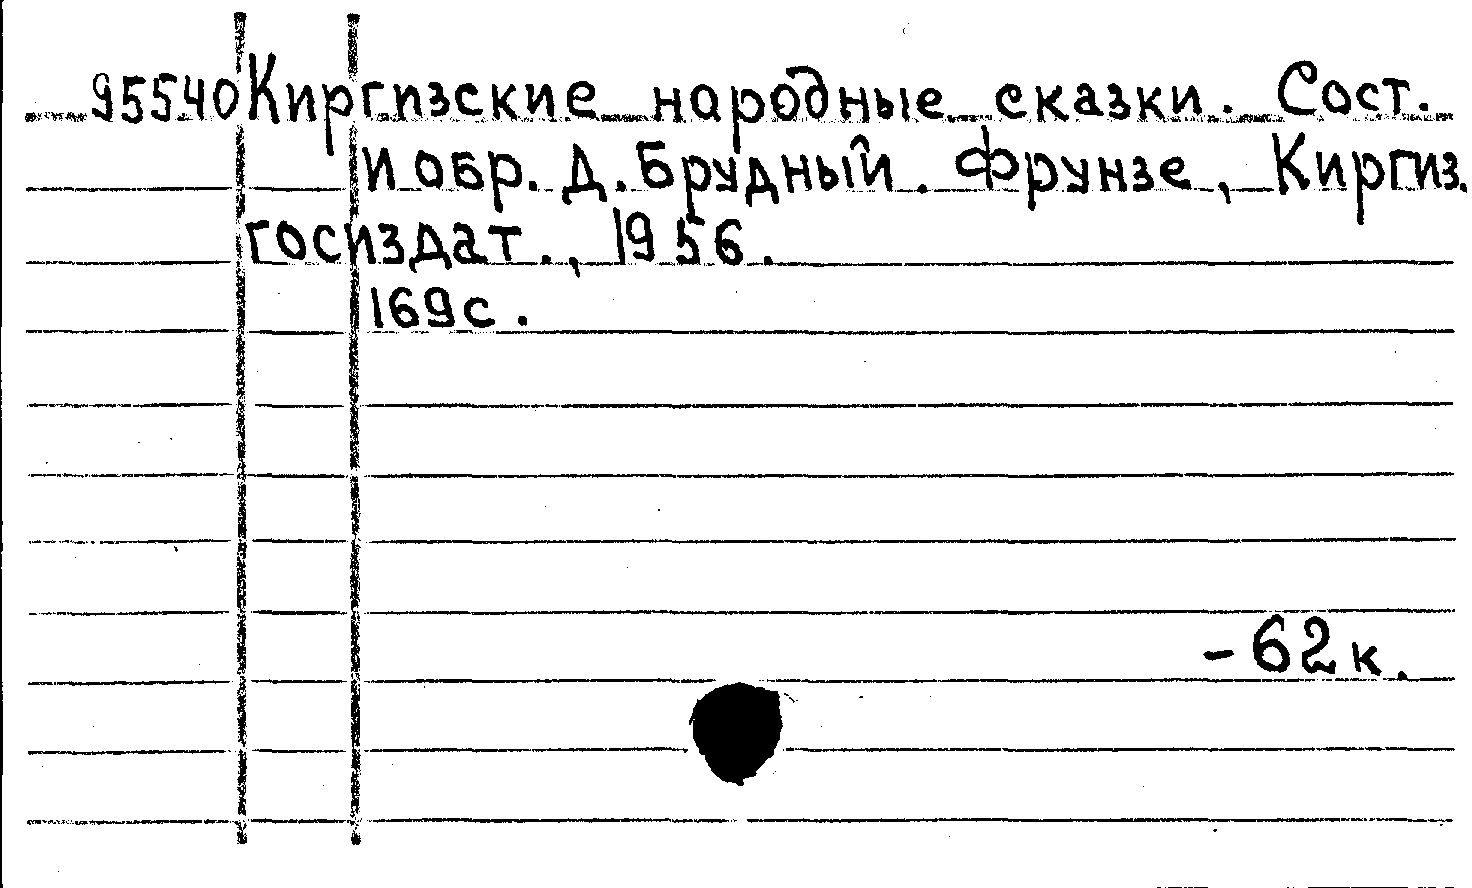 95540 Киргизские народные сказки. Сост.
и обр. Д. Брудный. Фрунзе, Киргиз.
госиздат., 1956.
169с.
- 62 к.